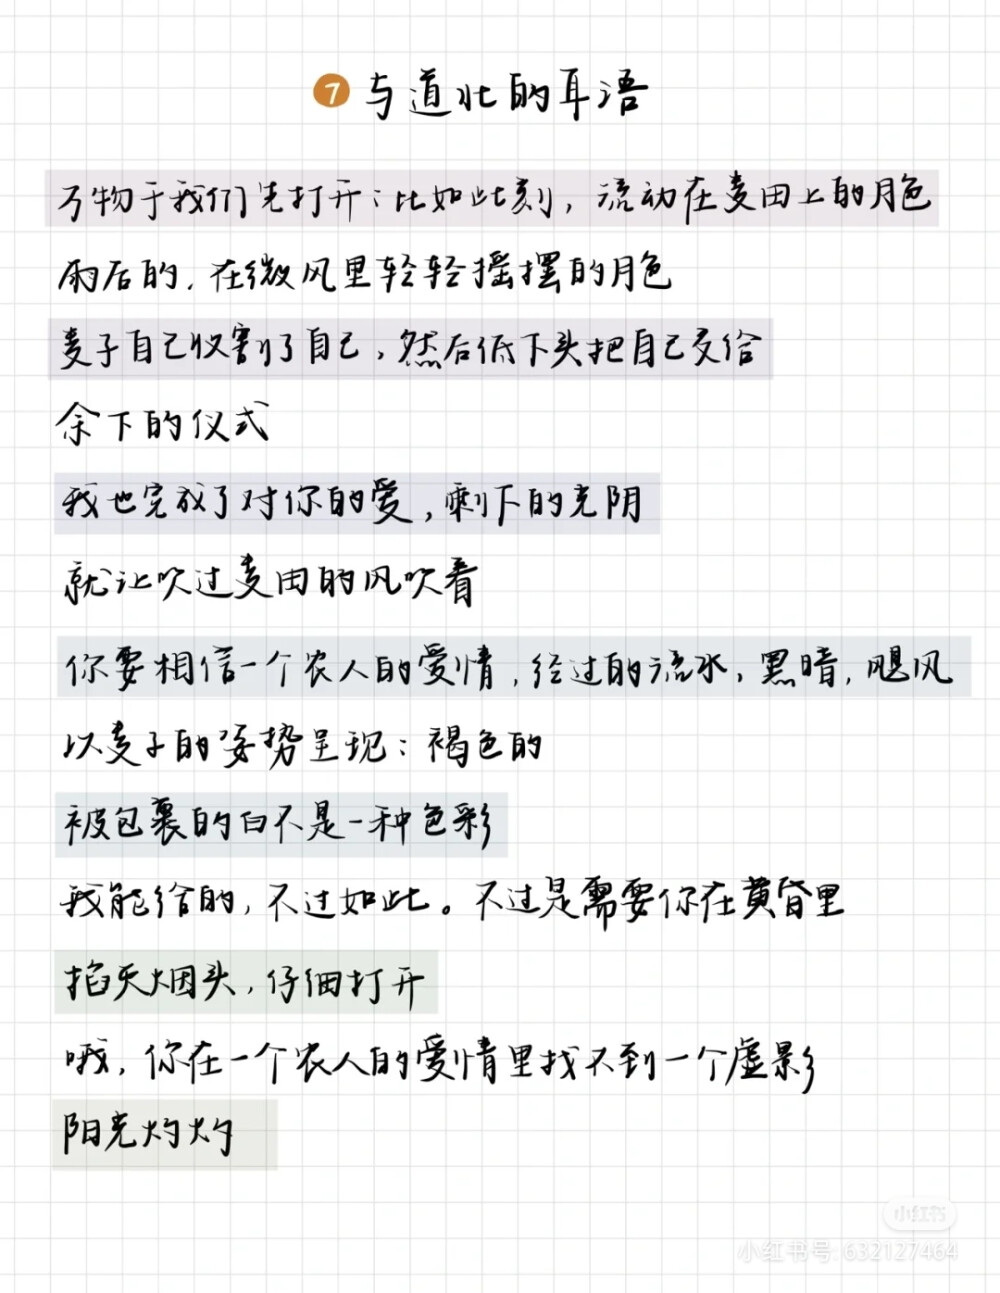 7 与道北的耳语
万物于我们先打开：比如此刻，流动在麦田上的月色
雨后的，在微风里轻轻摇摆的月色
麦子自己收割了自己，然后低下头把自己交给
余下的仪式
我也完成了对你的爱，剩下的光阴
就让吹过麦田的风吹着
你要相信一个农人的爱情，经过的流水，黑暗，飓风
以麦子的姿势呈现：褐色的
被包裹的白不是一种色彩
我能给的，不过如此。不过是需要你在黄昏里
掐灭烟头，仔细打开
哦，你在一个农人的爱情里找不到一个虚影
阳光灼灼
小红书
小红书号：632127464